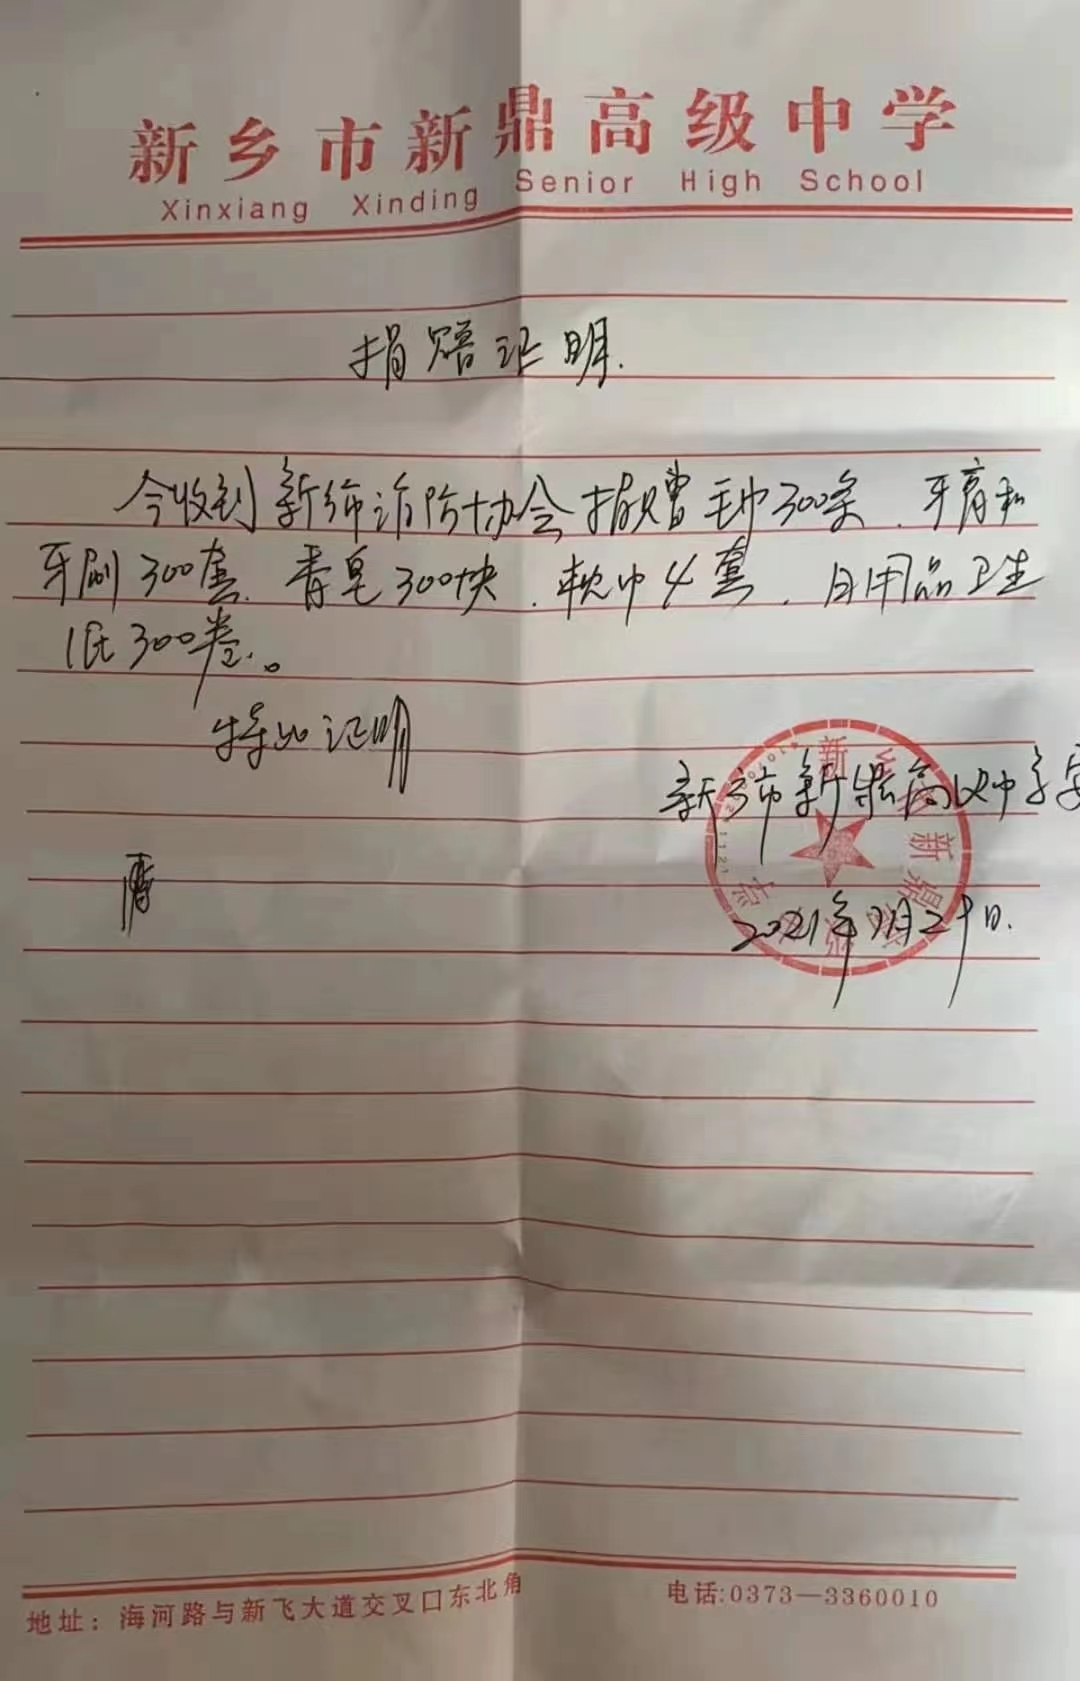 新乡市新鼎高级中学
Xinxiang Xinding Senior High School
捐赠证明.
今收到新乡市消防协会捐赠毛巾300条、牙膏和
牙刷300套、香皂300块、枕巾4套、日用品卫生
纸300卷。
特此证明
新乡市新鼎高级中学
2021年7月29日.
地址：海河路与新飞大道交叉口东北角
电话:0373—3360010